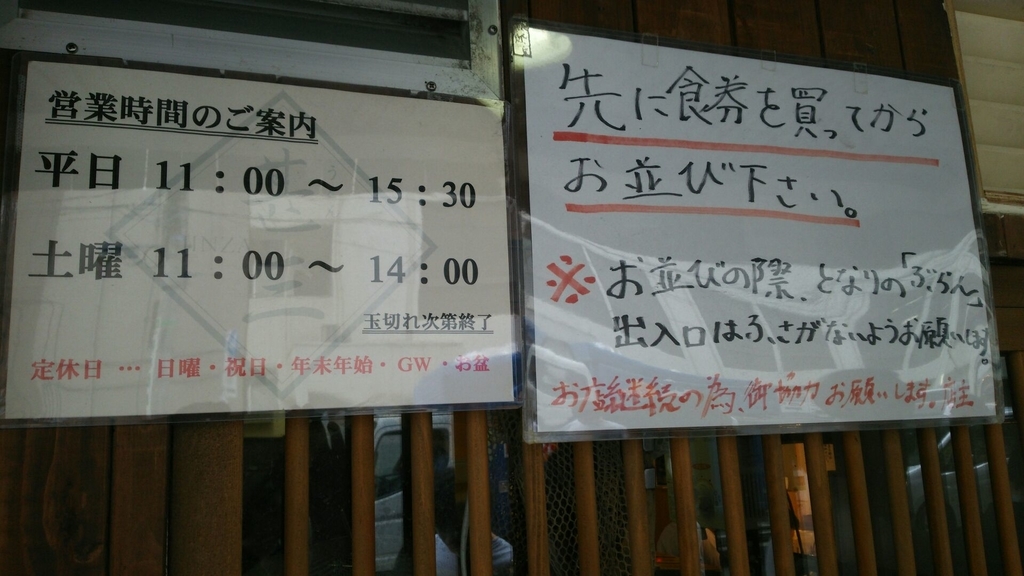 営業時間のご案内
平日 11：00 ～ 15：30
土曜 11：00 ～ 14：00
玉切れ次第終了
定休日 … 日曜・祝日・年末年始・GW・お盆
先に食券を買ってから
お並び下さい。
※ お並びの際、となりの「ぶらん」
出入口はふさがないようお願いします。
お店継続の為、御協力お願いします。店主